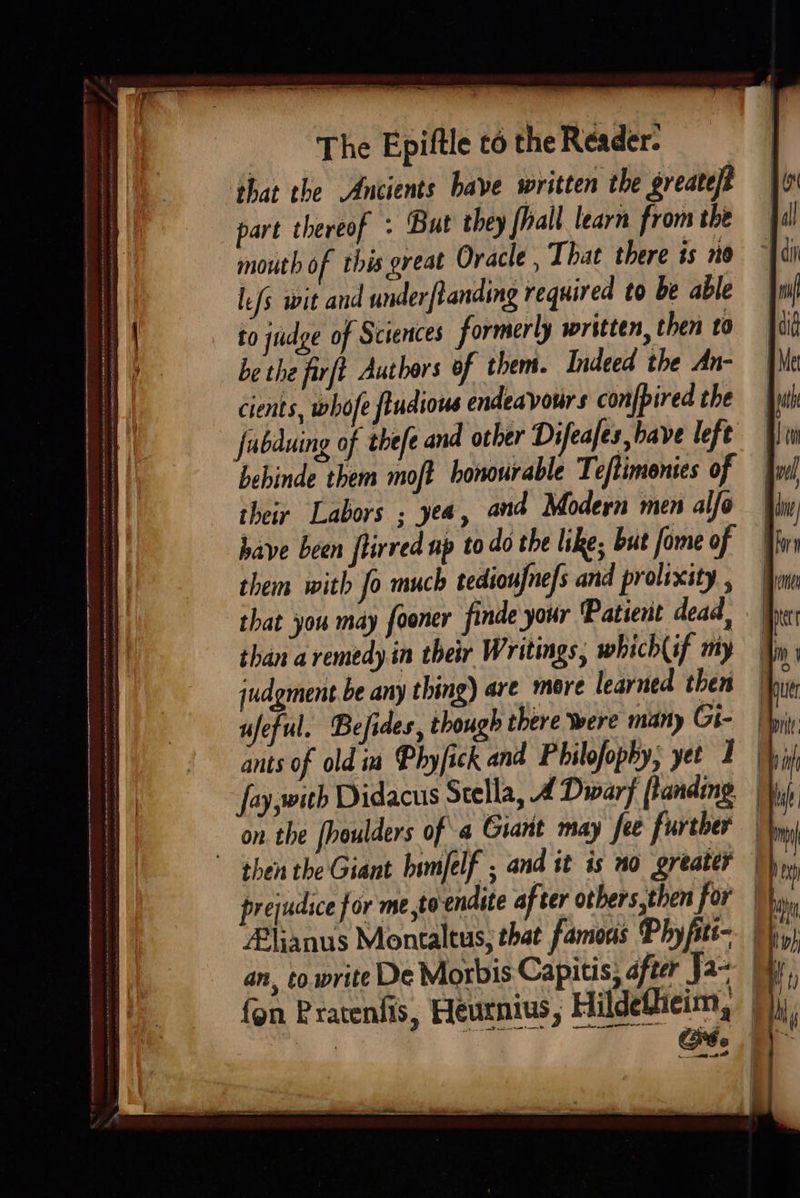 The Epiſtle to the Reader.
that the Ancients have written the greateſt
part thereof : But they ſhall learn from the
mouth of this great Oracle , That there is no
leſs wit and underſtanding required to be able
to judge of Sciences formerly written, then to
be the firſt Authors of them. Indeed the An-
cients, whoſe ſtudious endeavours conſpired the
ſubduing of theſe and other Diſeaſes, have left
behinde them moſt honourable Teſtimonies of
their Labors ; yea, and Modern men alſo
have been ſtirred up to do the like; but ſome of
them with ſo much tediouſneſs and prolixity ,
that you may ſooner finde your Patient dead,
than a remedy in their Writings, which (if my
judgment be any thing) are more learned then
uſeful. Beſides, though there were many Gi-
ants of old in Phyſick and Philoſophy, yet I
ſay, with Didacus Stella, A Dwarf ſtanding
on the ſhoulders of a Giant may ſee further
then the Giant himſelf ; and it is no greater
prejudice for me, to endite after others, then for
Ælianus Montaltus, that famous Phyſiti-
an, to write De Morbis Capitis, after Ja-
ſon Pratenſis, Heurnius, Hildeſheim,
&c.